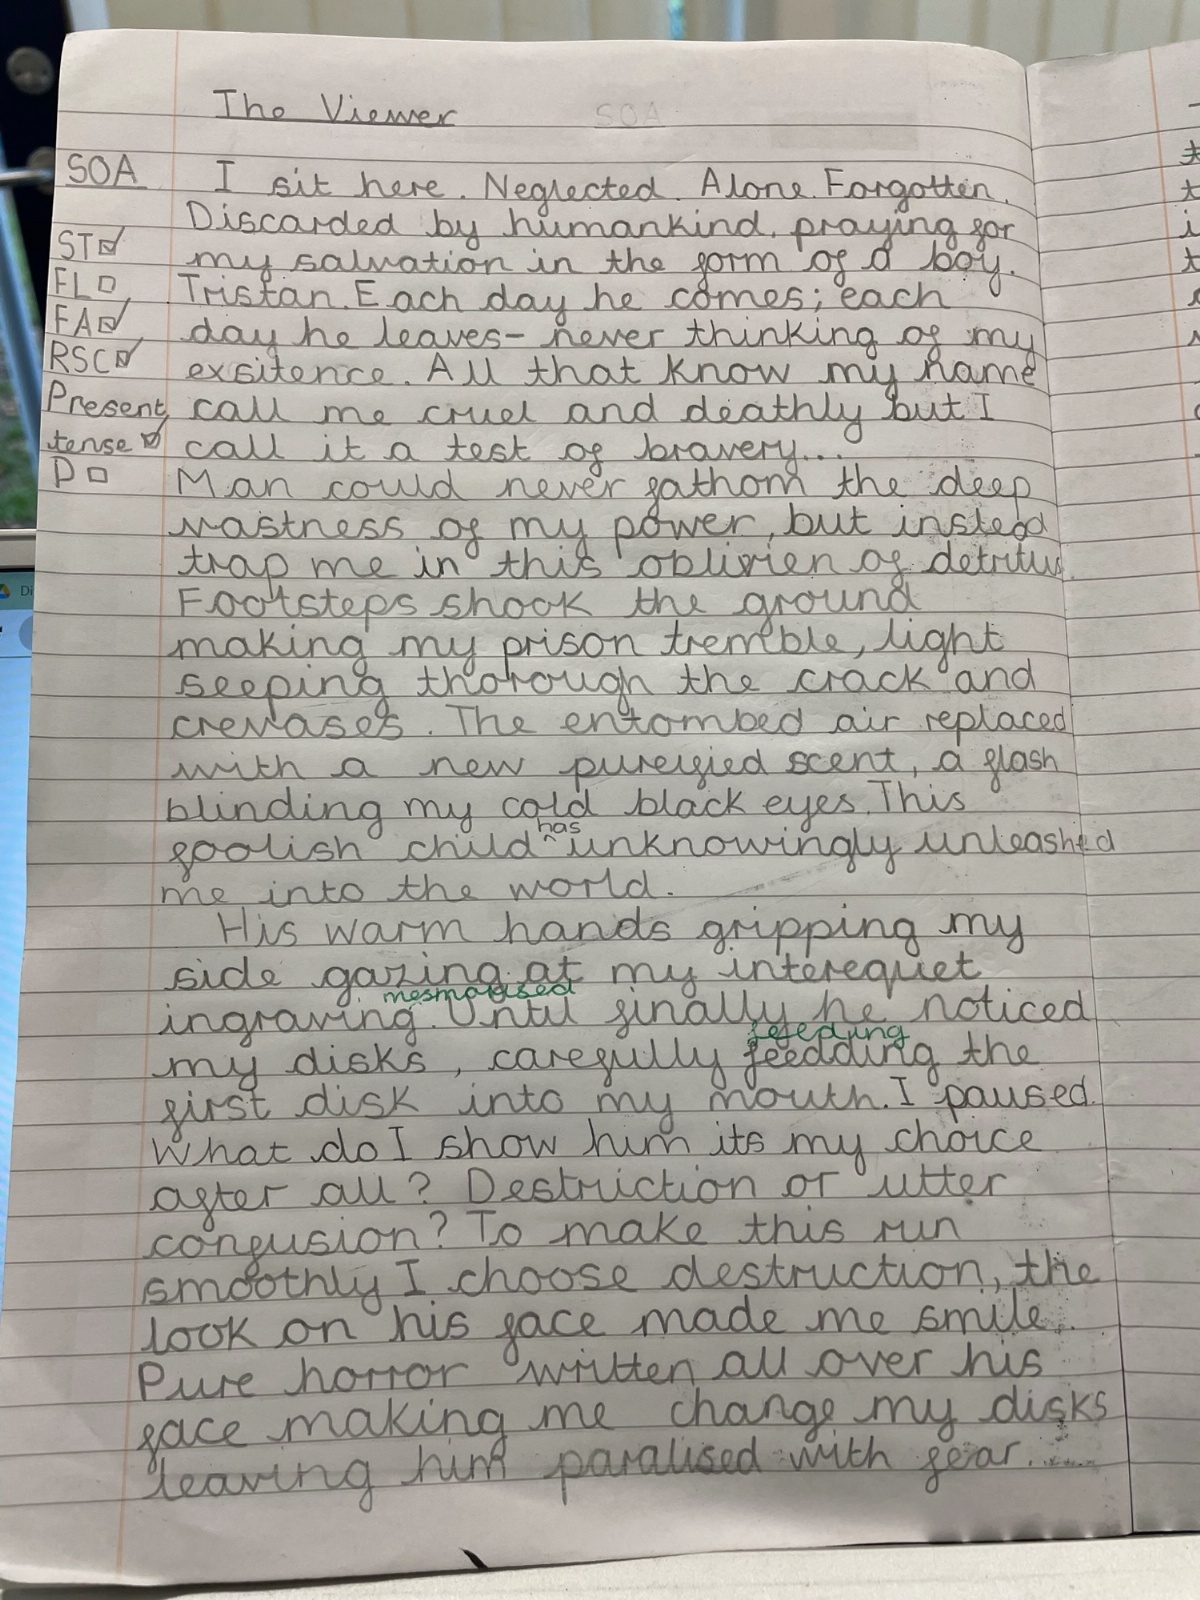 The Viewer
SOA
SOA
ST ☑
FL ☐
FA ☑
RSC ☑
Present
tense ☑
D ☐
I sit here. Neglected. Alone. Forgotten.
Discarded by humankind, praying for
my salvation in the form of a boy.
Tristan. Each day he comes; each
day he leaves- never thinking of my
exsitence. All that know my name
call me cruel and deathly but I
call it a test of bravery...
Man could never fathom the deep
vastness of my power, but instead
trap me in this oblivien of detritus
Footsteps shook the ground
making my prison tremble, light
seeping thorough the crack and
crevases. The entombed air replaced
with a new pureified scent, a flash
blinding my cold black eyes. This
foolish child ^has unknowingly unleashed
me into the world.
His warm hands gripping my
side gazing at my interequiet
mesmorised
ingraving. Until finally he noticed
feeding
my disks, carefully feedding the
first disk into my mouth. I paused.
What do I show him its my choice
after all? Destruction or utter
confusion? To make this run
smoothly I choose destruction, the
look on his face made me smile.
Pure horror written all over his
face making me change my disks
leaving him paralised with fear.....